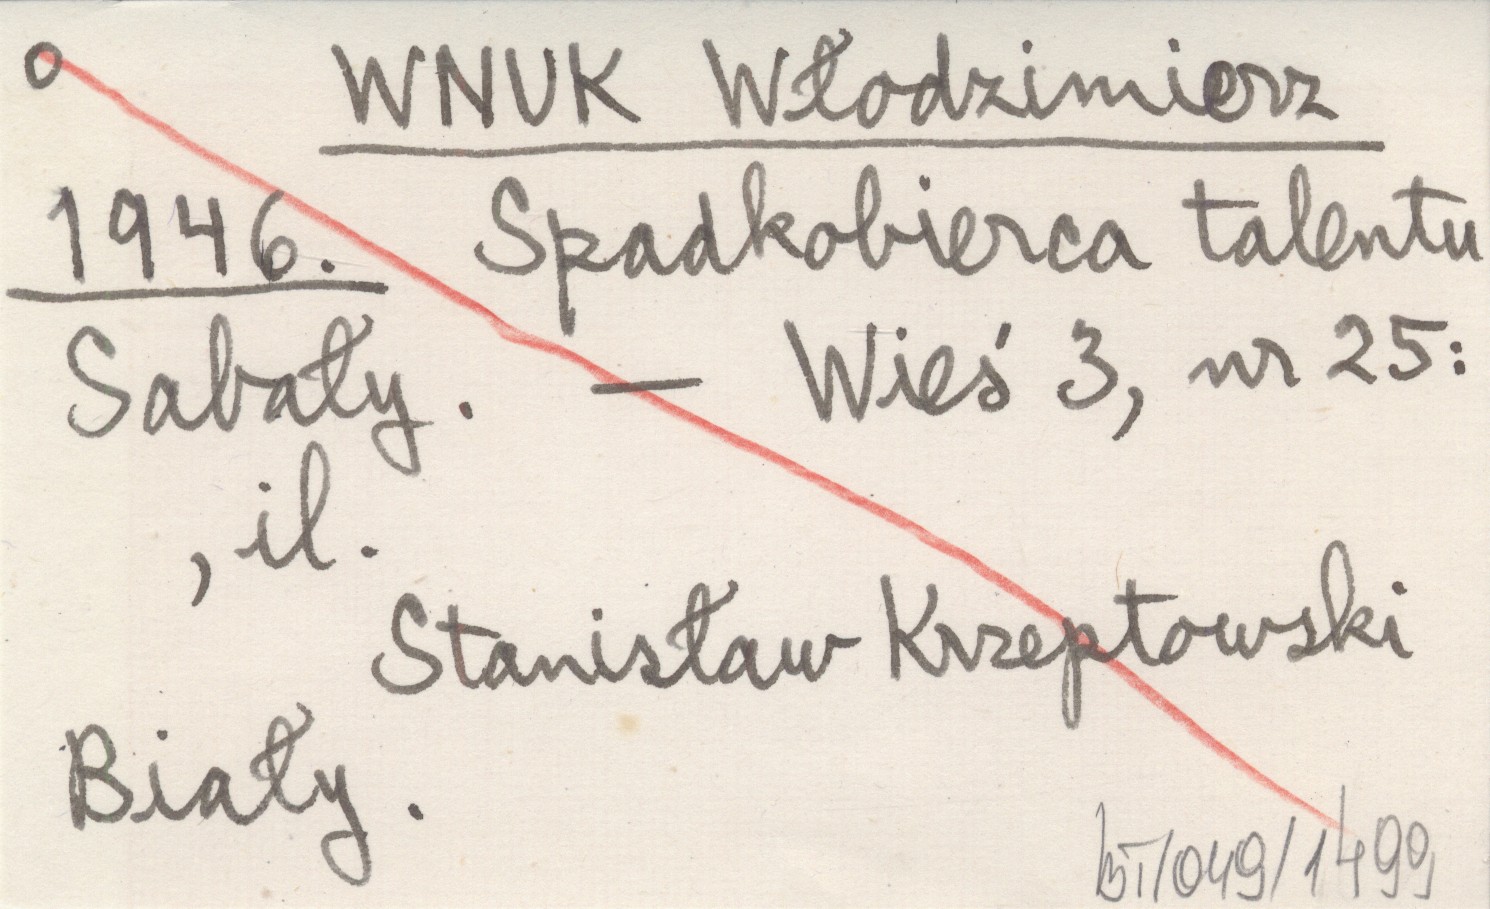 o WNUK Włodzimierz
1946. Spadkobierca talentu
Sabały. — Wieś 3, nr 25:
, il.
Stanisław Krzeptowski
Biały.
bI/049/1499